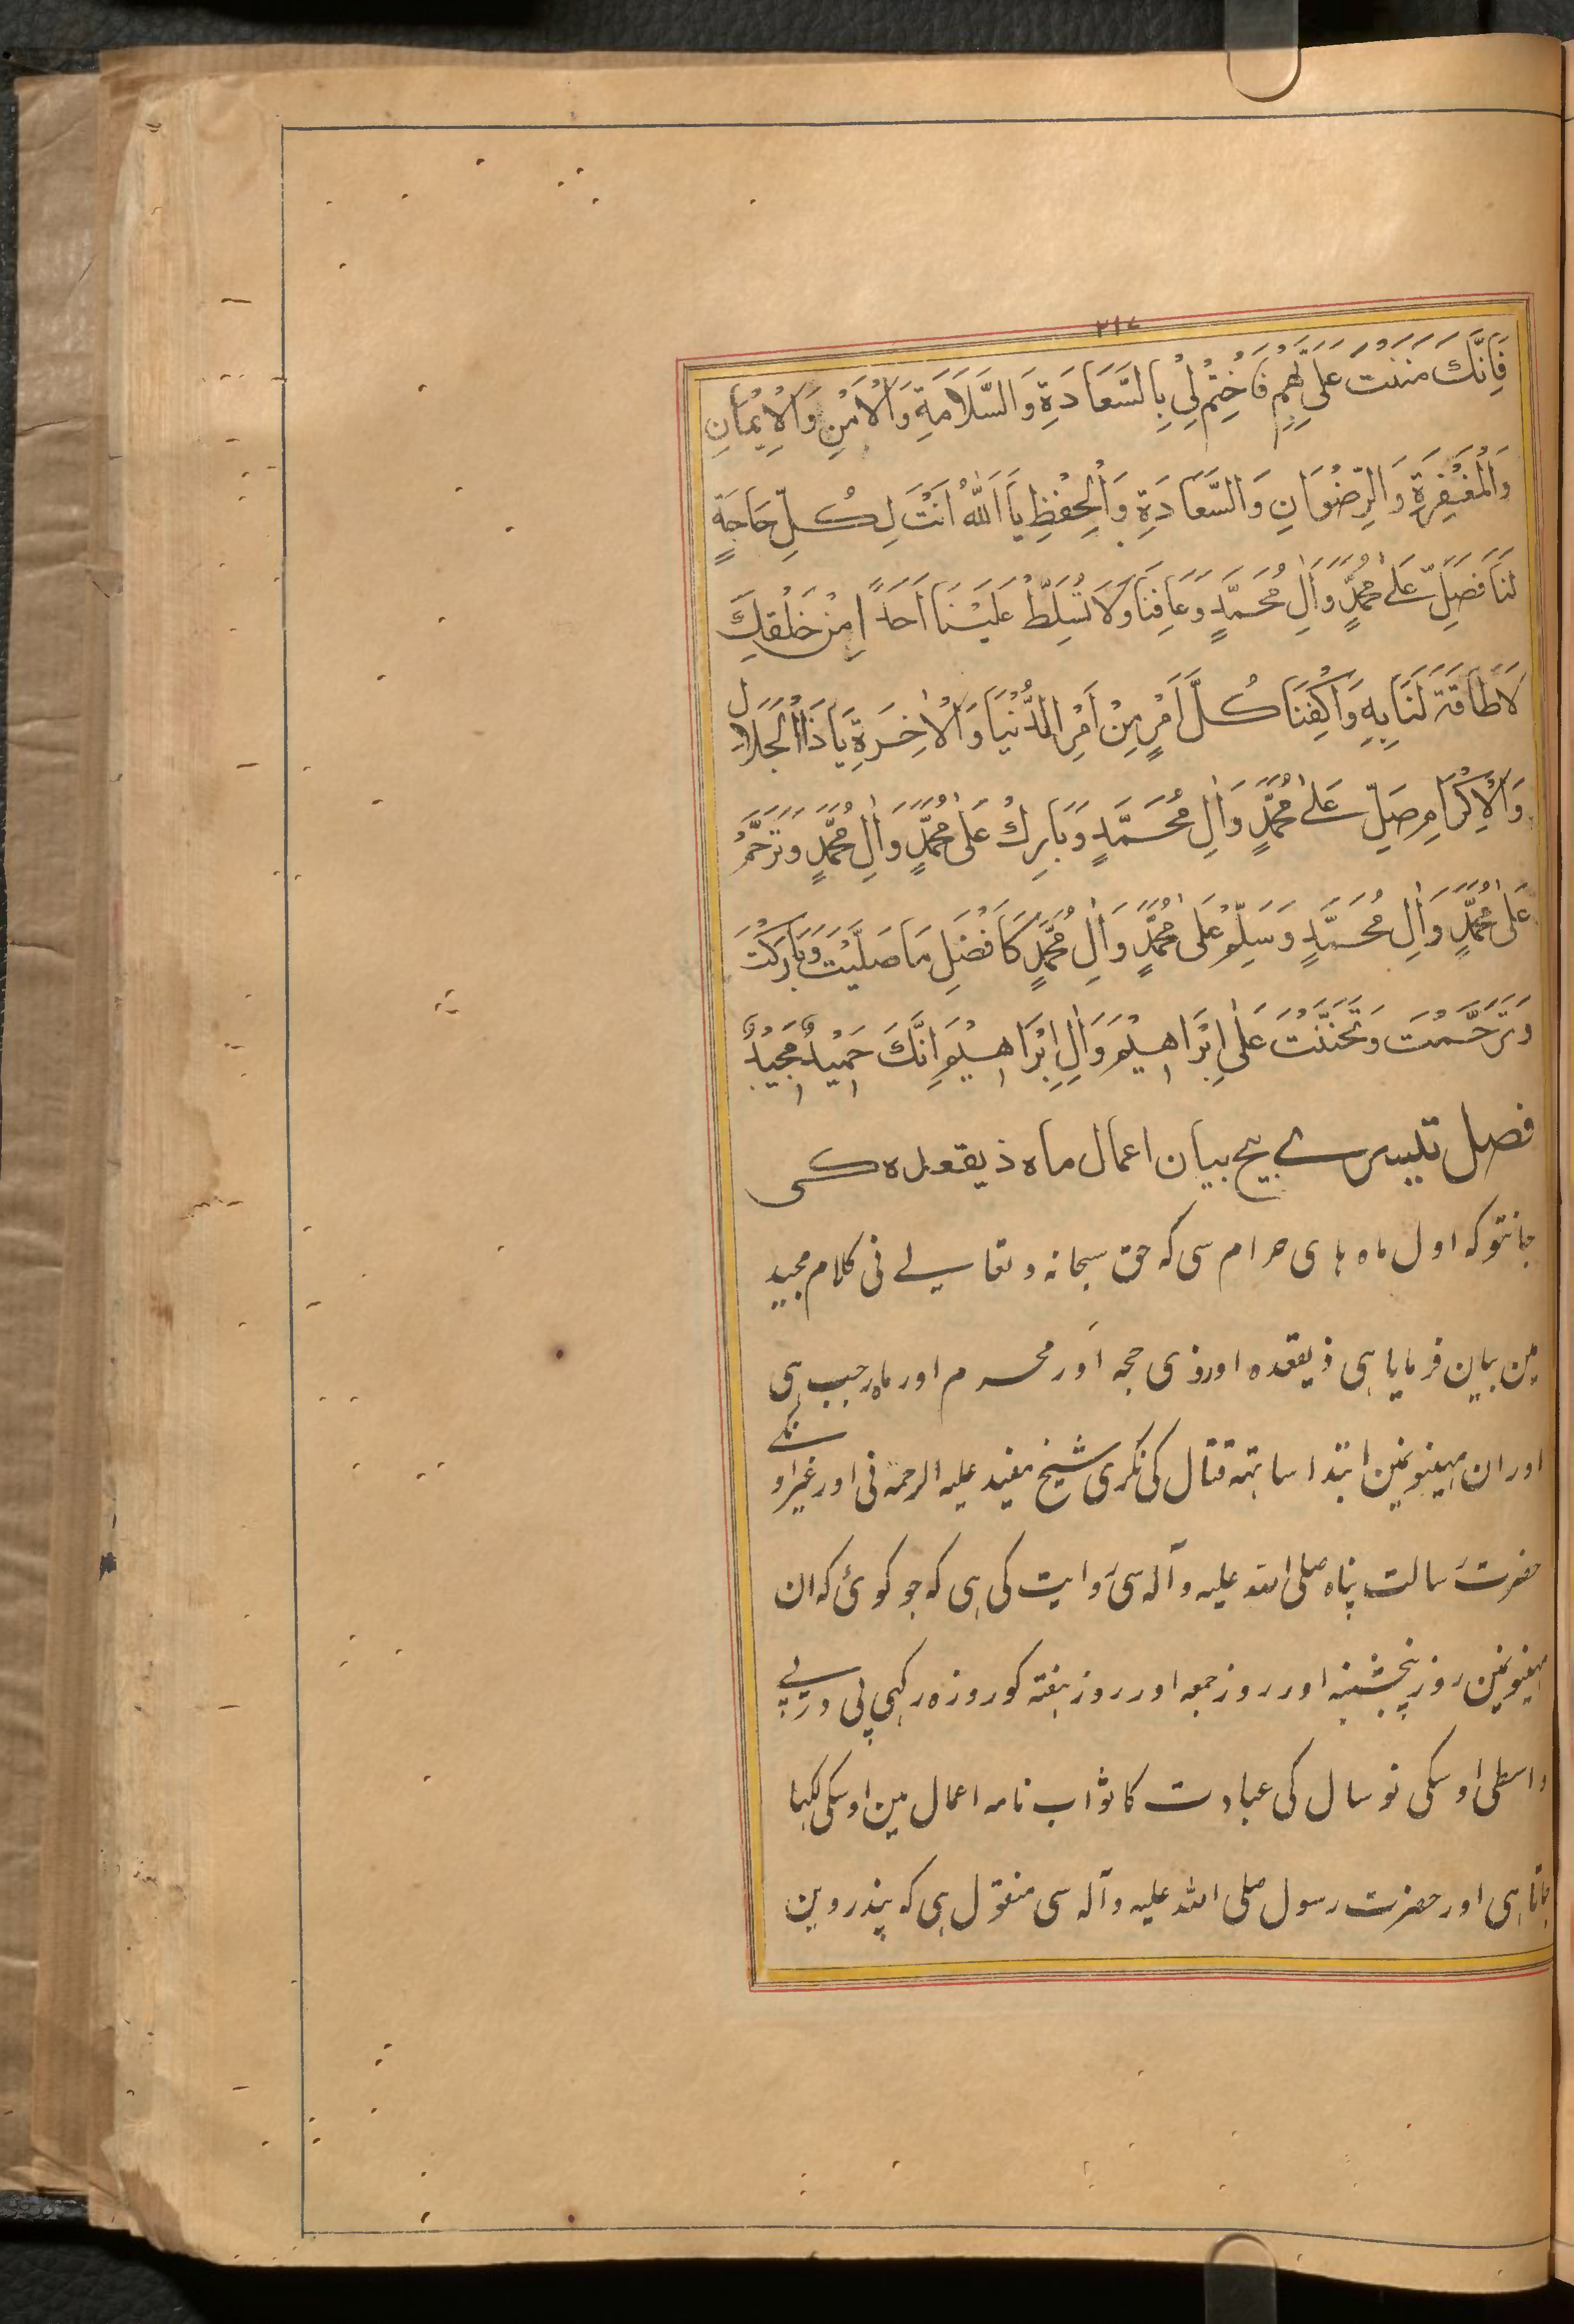 ۲۱۷
فَاِنَّكَ مَنَنْتَ عَلَيَّ بِهِمْ فَاخْتِمْ لِيْ بِالسَّعَادَةِ وَالسَّلَامَةِ وَالْاَمْنِ وَالْاِيْمَانِ
وَالْمَغْفِرَةِ وَالرِّضْوَانِ وَالسَّعَادَةِ وَالْحِفْظِ يَا اَللّٰهُ اَنْتَ لِكُلِّ حَاجَةٍ
لَنَا فَصَلِّ عَلٰى مُحَمَّدٍ وَّاٰلِ مُحَمَّدٍ وَعَافِنَا وَلَا تُسَلِّطْ عَلَيْنَا اَحَدًا مِنْ خَلْقِكَ
لَا طَاقَةَ لَنَا بِهٖ وَاكْفِنَا كُلَّ اَمْرٍ مِنْ اَمْرِ الدُّنْيَا وَالْاٰخِرَةِ يَا ذَا الْجَلَالِ
وَالْاِكْرَامِ صَلِّ عَلٰى مُحَمَّدٍ وَاٰلِ مُحَمَّدٍ وَبَارِكْ عَلٰى مُحَمَّدٍ وَاٰلِ مُحَمَّدٍ وَتَرَحَّمْ
عَلٰى مُحَمَّدٍ وَاٰلِ مُحَمَّدٍ وَسَلِّمْ عَلٰى مُحَمَّدٍ وَاٰلِ مُحَمَّدٍ كَاَفْضَلِ مَا صَلَّيْتَ وَبَارَكْتَ
وَتَرَحَّمْتَ وَتَحَنَّنْتَ عَلٰى اِبْرَاهِيْمَ وَاٰلِ اِبْرَاهِيْمَ اِنَّكَ حَمِيْدٌ مَجِيْدٌ
فصل تیسرے بیچ بیان اعمال ماہ ذیقعدہ کی
جانتو کہ اول ماہ ہای حرام سی کہ حق سبحانہ و تعالے نی کلام مجید
مین بیان فرمایا ہی ذیقعدہ اور ذی حجہ اور محرم اور ماہ رجب ہی
اور ان مہینونمین ابتدا ساتہہ قتال کی نکری شیخ مفید علیہ الرحمہ نی اور غیر اونکے
حضرت رسالت پناہ صلی اللہ علیہ وآلہ سی روایت کی ہی کہ جو کوئی کہ ان
مہینونمین روز پنجشنبہ اور روز جمعہ اور روز ہفتہ کو روزہ رکہی پی درپے
واسطی اوسکی نو سال کی عبادت کا ثواب نامہ اعمال مین اوسکی لکہا
جاتا ہی اور حضرت رسول صلی اللہ علیہ وآلہ سی منقول ہی کہ پندروین